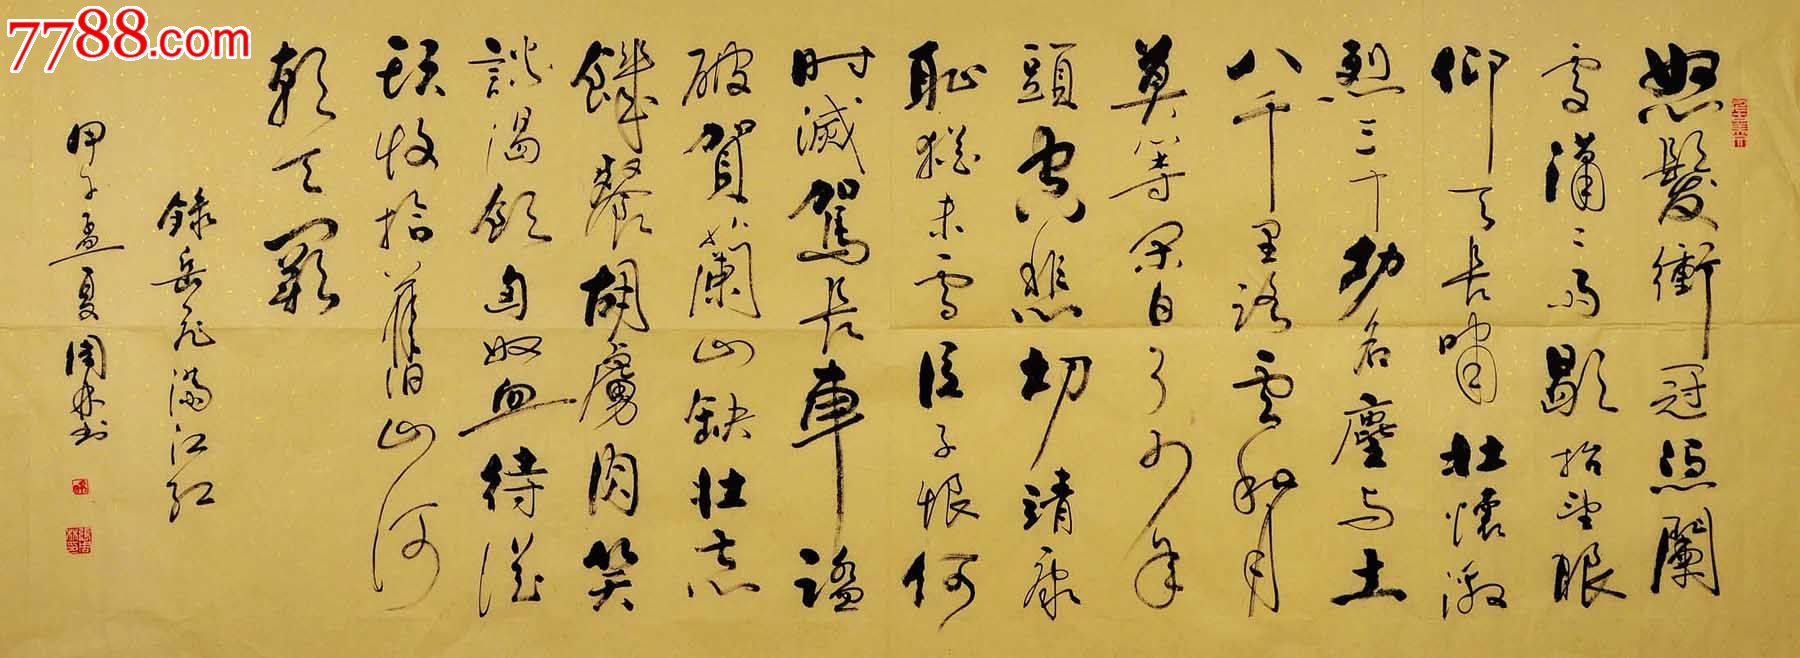 7788.com
怒髮衝冠憑闌
處瀟〻雨歇抬望眼
仰天長嘯壯懷激
烈三十功名塵与土
八千里路雲和月
莫等閑白了少年
頭空悲切靖康
耻猶未雪臣子恨何
时滅駕長車踏
破賀蘭山缺壯志
饑餐胡虜肉笑
談渴飲匈奴血待從
頭收拾舊山河
朝天闕
錄岳飛滿江紅
甲子孟夏周林书